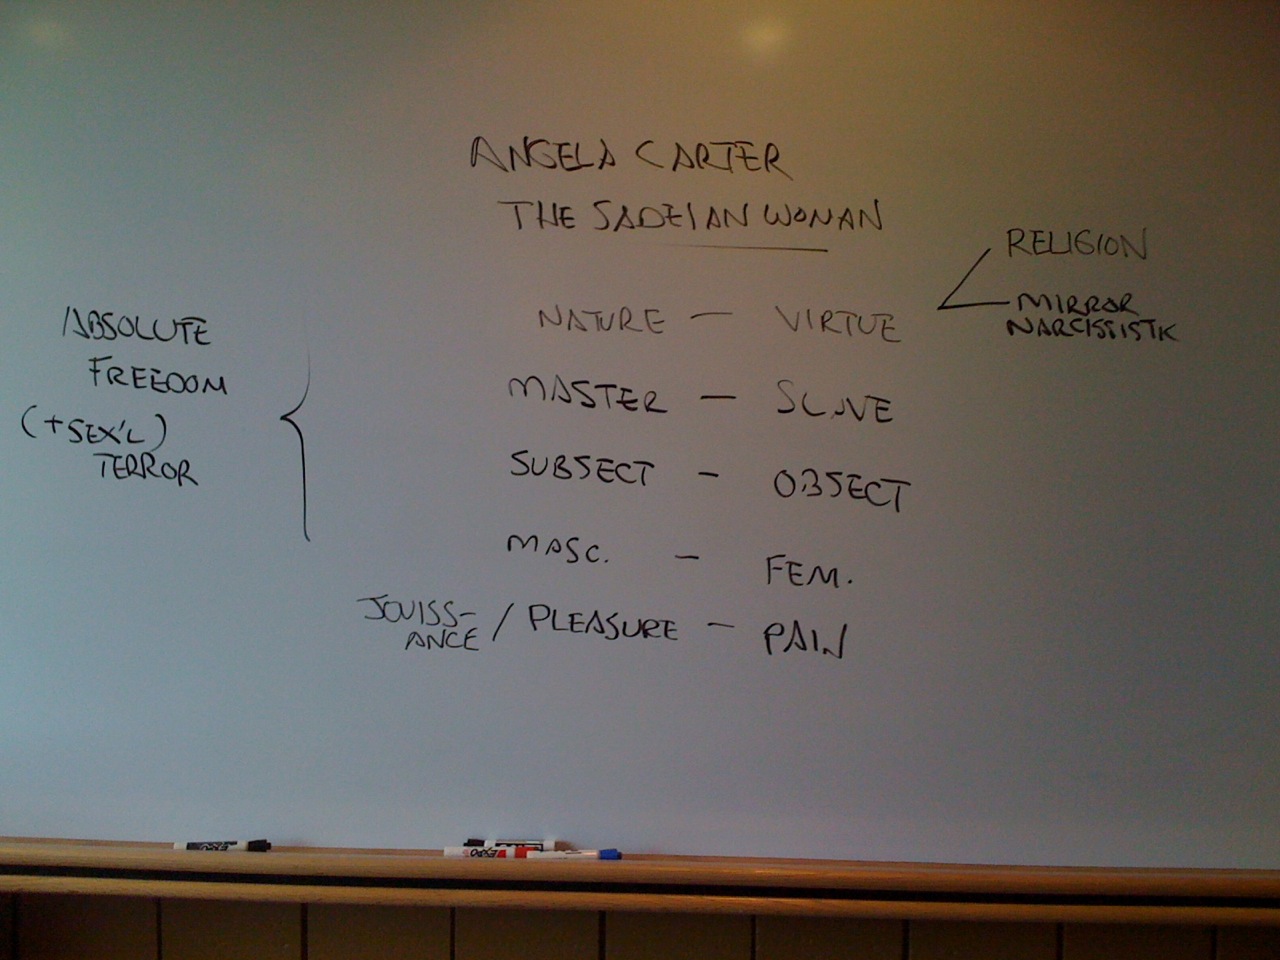 ANGELA CARTER
THE SADEIAN WOMAN
RELIGION
NATURE — VIRTUE
MIRROR
NARCISSISTIK
ABSOLUTE
FREEDOM
(+SEX'L)
TERROR
MASTER — SLAVE
SUBJECT — OBJECT
MASC. — FEM.
JOUISS-
ANCE / PLEASURE — PAIN
EXPO